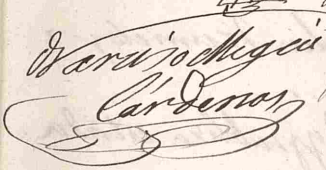 Narciso Megia
Cárdenas